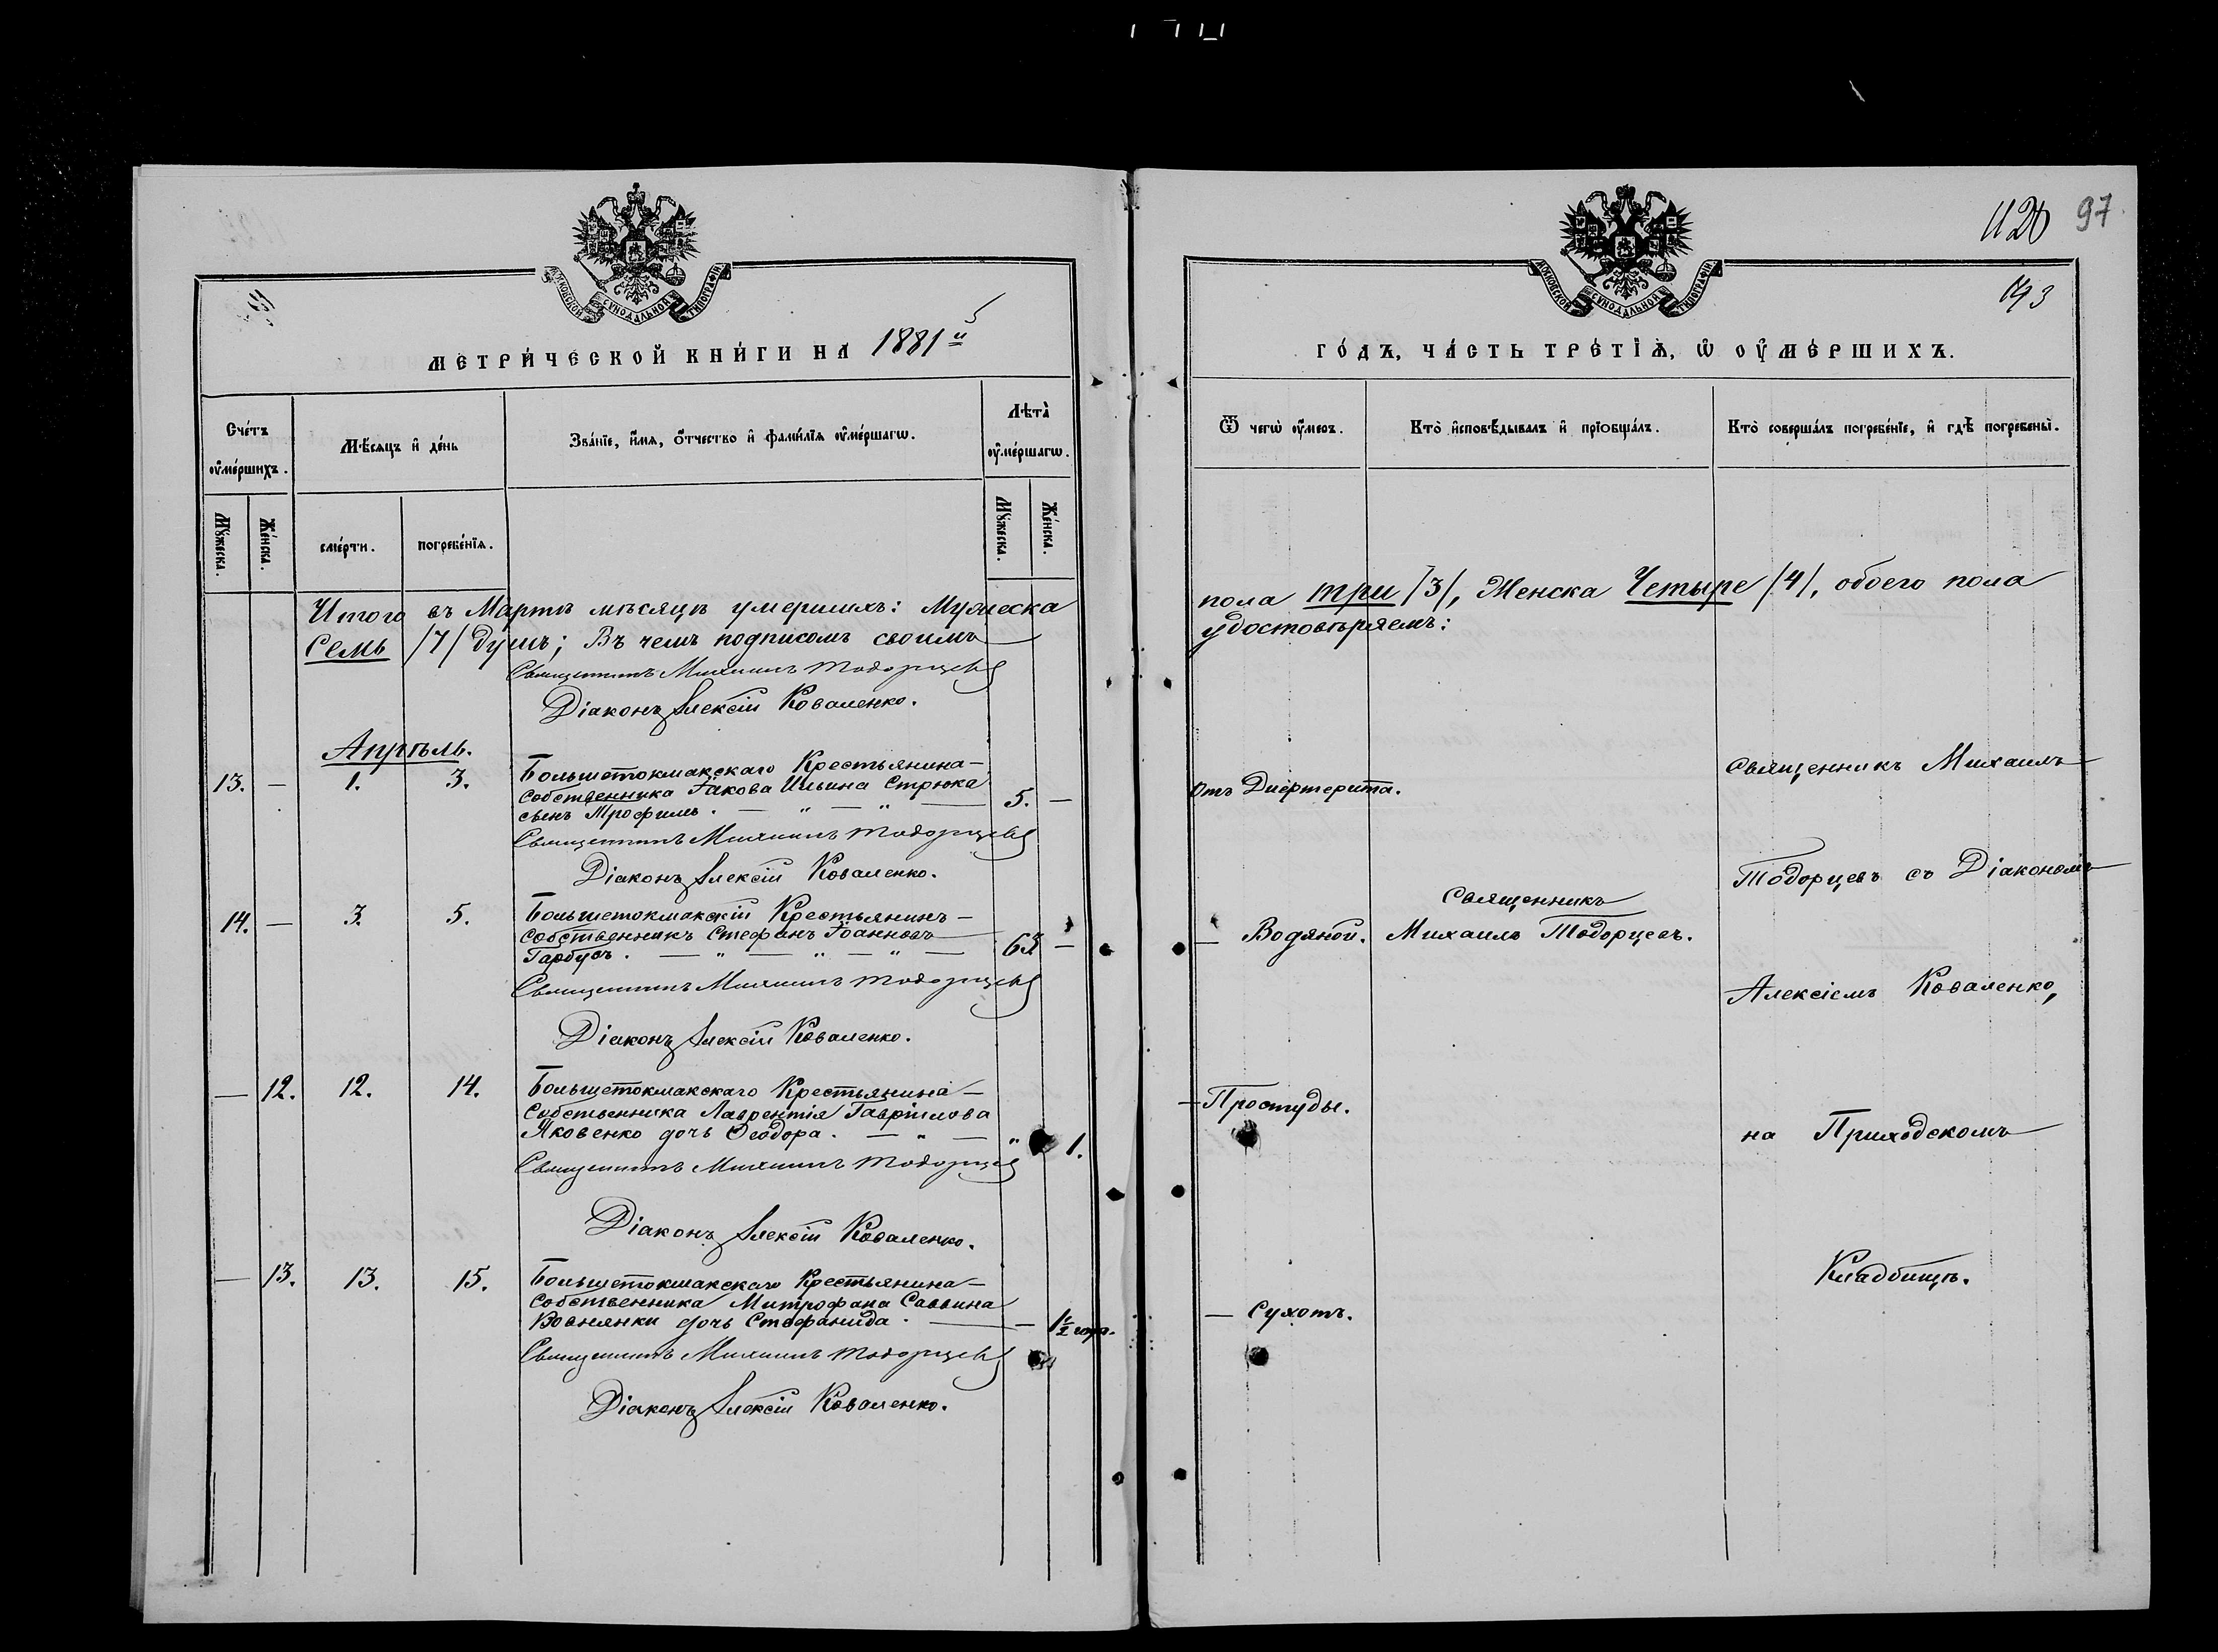 МОСКОВСКОЙ СѴНОДАЛЬНОЙ ТИПОГРАФІИ
МЕТРИ́ЧЕСКОЙ КНИ́ГИ НА 1881й
Сче́тъ ᲂу҆ме́ршихъ.
Мѣ́сяцъ и҆ де́нь
Зва́нїе, и҆́мѧ, ѻ҆́тчество и҆ фами́лїѧ ᲂу҆ме́ршагѡ.
Лѣ́та ᲂу҆ме́ршагѡ.
Мꙋ́жеска.
Же́нска.
сме́рти.
погребе́нїѧ.
Мꙋ́жеска.
Же́нска.
Итого въ Мартѣ мѣсяцѣ умершихъ: Мужеска
Семь /7/ душъ; Въ чемъ подписомъ своимъ
Священникъ Михаилъ Тодорцевъ
Діаконъ Алексій Коваленко.
Апрѣль.
13. — 1. 3. Большетокмакскаго Крестьянина-
собственника Іакова Ильина Стрюка
сынъ Трофимъ. — " — " — 5. —
Священникъ Михаилъ Тодорцевъ
Діаконъ Алексій Коваленко.
14. — 3. 5. Большетокмакскій Крестьянинъ-
собственникъ Стефанъ Іоанновъ
Гарбузъ. — " — " — " — 63 —
Священникъ Михаилъ Тодорцевъ
Діаконъ Алексій Коваленко.
— 12. 12. 14. Большетокмакскаго Крестьянина-
Собственника Лаврентія Гавріилова
Яковенко дочь Ѳеодора. — " — " 1.
Священникъ Михаилъ Тодорцевъ
Діаконъ Алексій Коваленко.
— 13. 13. 15. Большетокмакскаго Крестьянина-
Собственника Митрофана Саввина
Вовнянки дочь Стефанида. — — 1½ года.
Священникъ Михаилъ Тодорцевъ
Діаконъ Алексій Коваленко.
97
193
МОСКОВСКОЙ СѴНОДАЛЬНОЙ ТИПОГРАФІИ
ГО́ДЪ, ЧА́СТЬ ТРЕ́ТІѦ, Ѡ ОУ҆МЕ́РШИХЪ.
Ѿ чегѡ̀ ᲂу҆́меръ.
Кто̀ и҆сповѣ́дывалъ и҆ прїобща́лъ.
Кто̀ соверша́лъ погребе́нїе, и҆ гдѣ̀ погребены̀.
пола три /3/, Женска Четыре /4/, обоего пола
удостовѣряемъ:
Отъ Дифтерита.
Священникъ Михаилъ
Тодорцевъ съ Діакономъ
Священникъ
— Водяной. Михаилъ Тодорцевъ.
Алексіемъ Коваленко,
— Простуды.
на Приходскомъ
Кладбищѣ.
— Сухотъ.